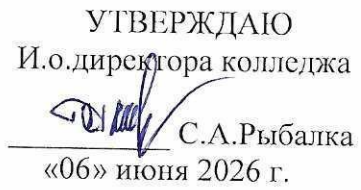 УТВЕРЖДАЮ
И.о.директора колледжа
С.А.Рыбалка
«06» июня 2026 г.